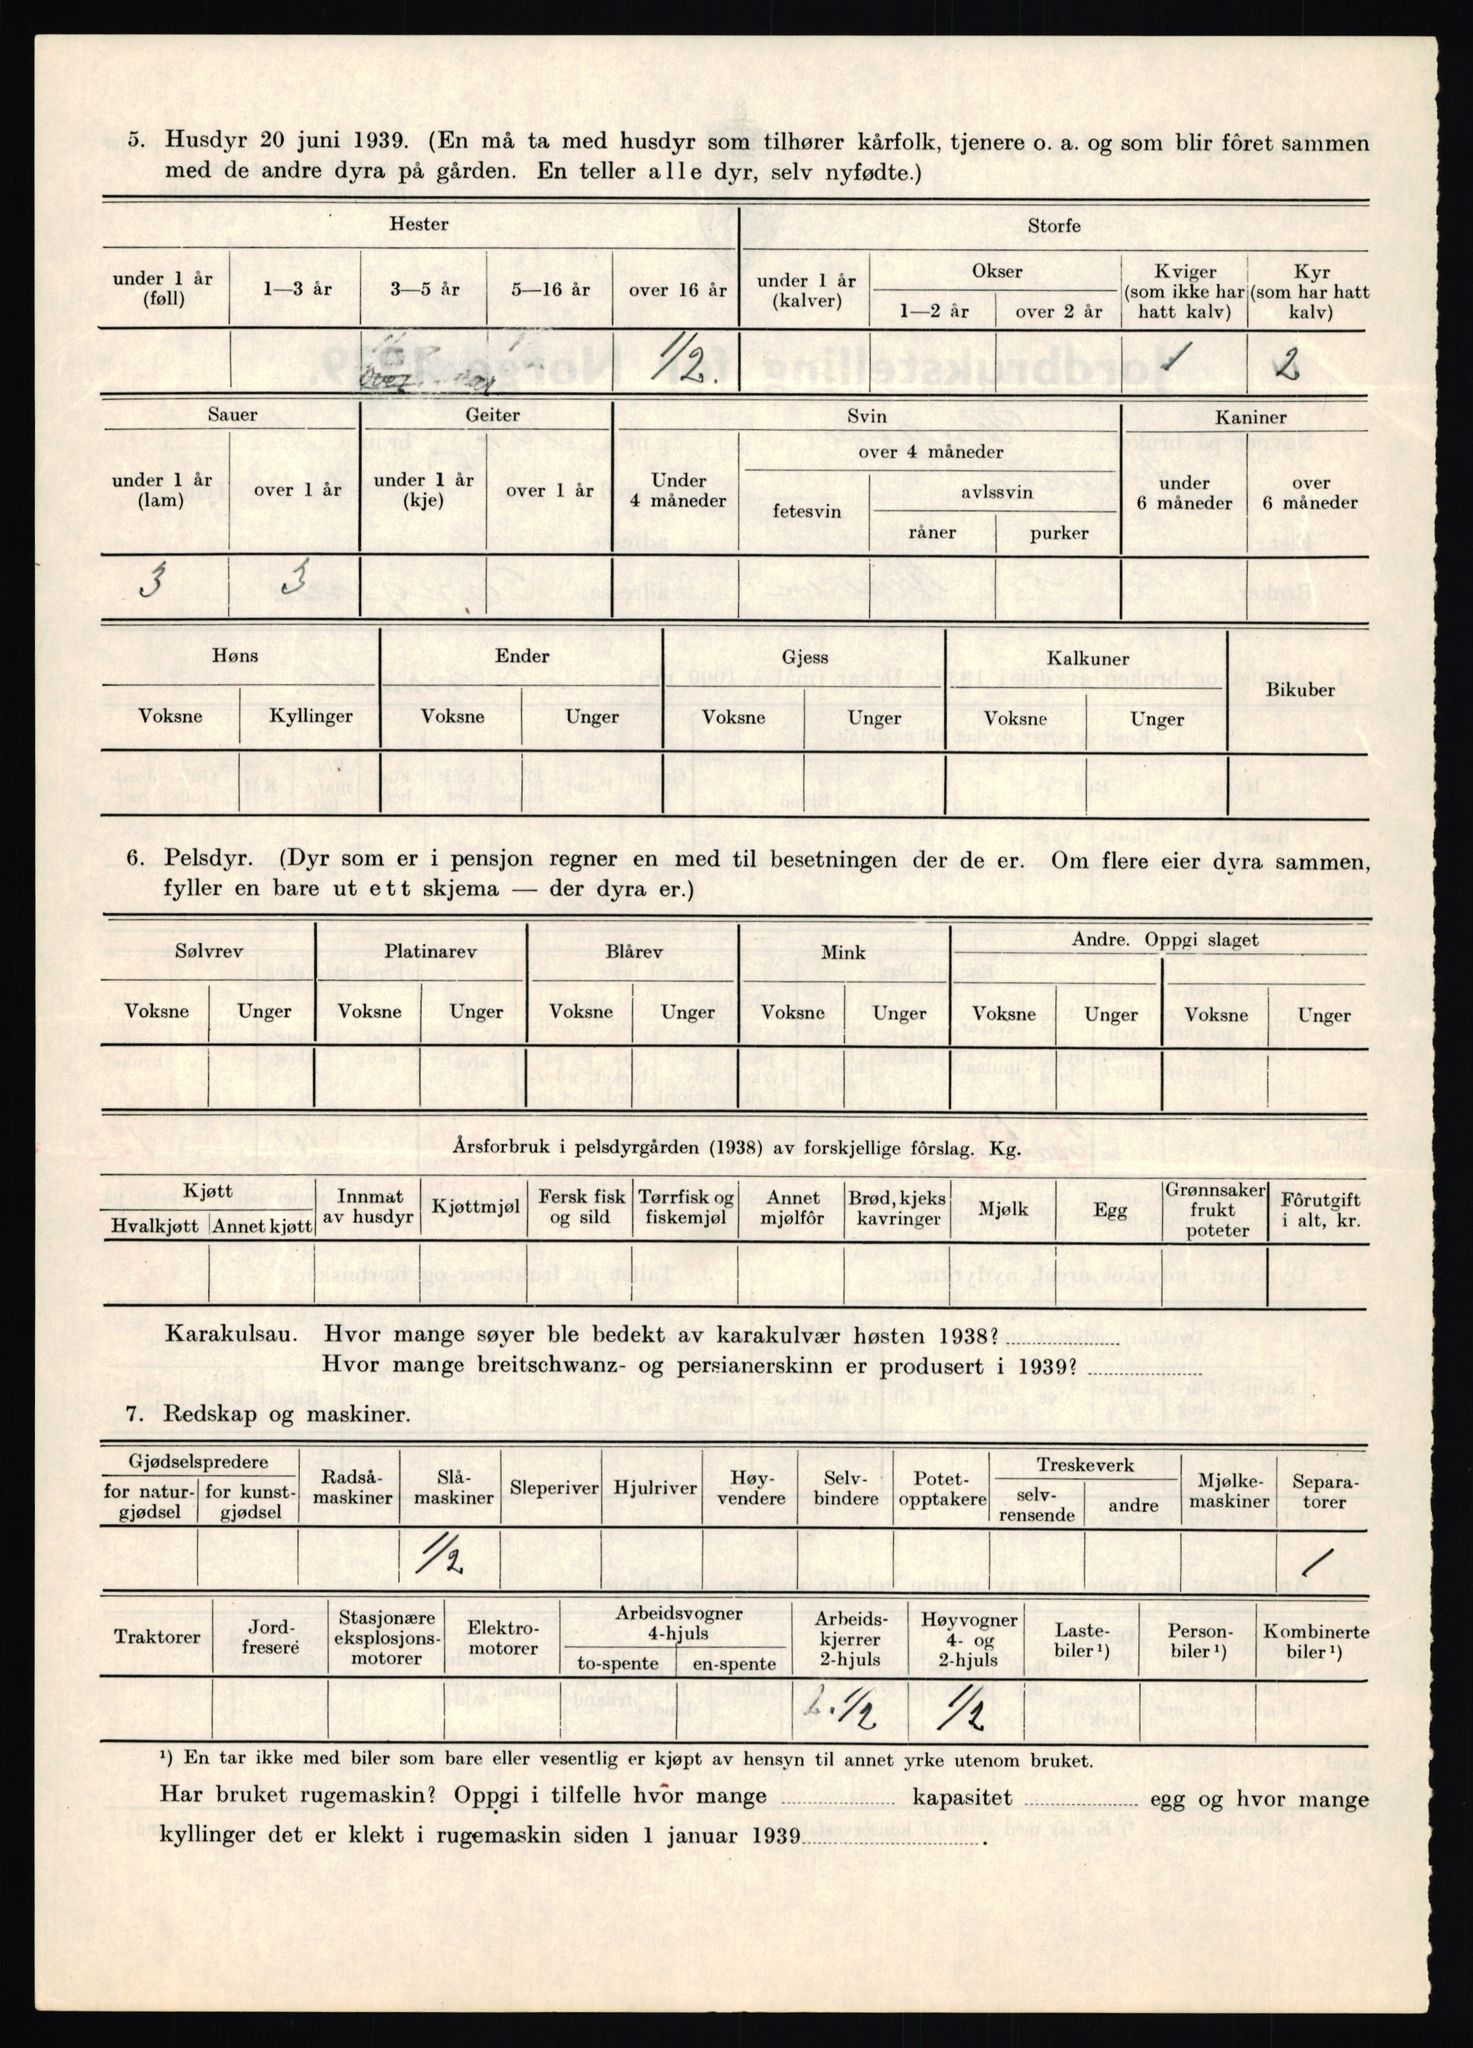 5. Husdyr 20 juni 1939. (En må ta med husdyr som tilhører kårfolk, tjenere o. a. og som blir fôret sammen
med de andre dyra på gården. En teller alle dyr, selv nyfødte.)
Hester Storfe
under 1 år (føll) 1—3 år 3—5 år 5—16 år over 16 år under 1 år (kalver) Okser 1—2 år over 2 år Kviger (som ikke har hatt kalv) Kyr (som har hatt kalv)
1/2. 1 2
Sauer Geiter Svin Kaniner
under 1 år (lam) over 1 år under 1 år (kje) over 1 år Under 4 måneder over 4 måneder fetesvin avlssvin råner purker under 6 måneder over 6 måneder
3 3
Høns Ender Gjess Kalkuner Bikuber
Voksne Kyllinger Voksne Unger Voksne Unger Voksne Unger
6. Pelsdyr. (Dyr som er i pensjon regner en med til besetningen der de er. Om flere eier dyra sammen,
fyller en bare ut ett skjema — der dyra er.)
Sølvrev Platinarev Blårev Mink Andre. Oppgi slaget
Voksne Unger Voksne Unger Voksne Unger Voksne Unger Voksne Unger Voksne Unger
Årsforbruk i pelsdyrgården (1938) av forskjellige fôrslag. Kg.
Kjøtt Hvalkjøtt Annet kjøtt Innmat av husdyr Kjøttmjøl Fersk fisk og sild Tørrfisk og fiskemjøl Annet mjølfôr Brød, kjeks kavringer Mjølk Egg Grønnsaker frukt poteter Fôrutgift i alt, kr.
Karakulsau. Hvor mange søyer ble bedekt av karakulvær høsten 1938?
Hvor mange breitschwanz- og persianerskinn er produsert i 1939?
7. Redskap og maskiner.
Gjødselspredere for natur-gjødsel for kunst-gjødsel Radså-maskiner Slå-maskiner Sleperiver Hjulriver Høy-vendere Selv-bindere Potet-opptakere Treskeverk selv-rensende andre Mjølke-maskiner Separa-torer
1/2 1
Traktorer Jord-fresere Stasjonære eksplosjons-motorer Elektro-motorer Arbeidsvogner 4-hjuls to-spente en-spente Arbeids-kjerrer 2-hjuls Høyvogner 4- og 2-hjuls Laste-biler¹) Person-biler¹) Kombinerte biler¹)
1/2 1/2
¹) En tar ikke med biler som bare eller vesentlig er kjøpt av hensyn til annet yrke utenom bruket.
Har bruket rugemaskin? Oppgi i tilfelle hvor mange kapasitet egg og hvor mange
kyllinger det er klekt i rugemaskin siden 1 januar 1939 .